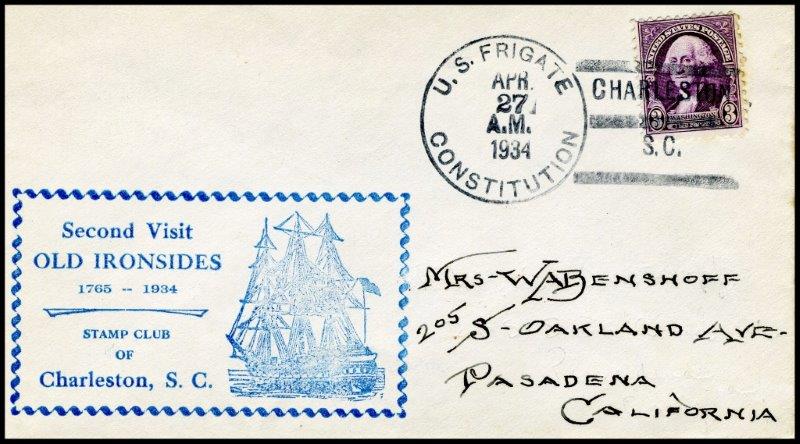 U. S. FRIGATE
APR.
27
A.M.
1934
CONSTITUTION
CHARLESTON
S.C.
UNITED STATES POSTAGE
3 WASHINGTON 3
CENTS
Second Visit
OLD IRONSIDES
1765 -- 1934
STAMP CLUB
OF
Charleston, S. C.
Mrs-WABenshoff
205 S-Oakland Ave-
Pasadena
California